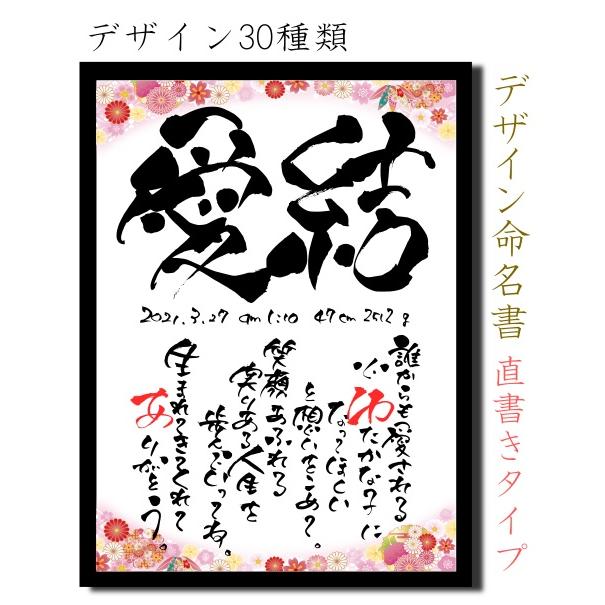 デザイン30種類
デザイン命名書 直書きタイプ
愛結
2021.3.27 am 1:10 47cm 2512g
誰からも愛される
心ゆたかな子に
なってほしい
と想いをこめて。
笑顔あふれる
実りある人生を
歩んでいってね。
生まれてきてくれて
ありがとう。